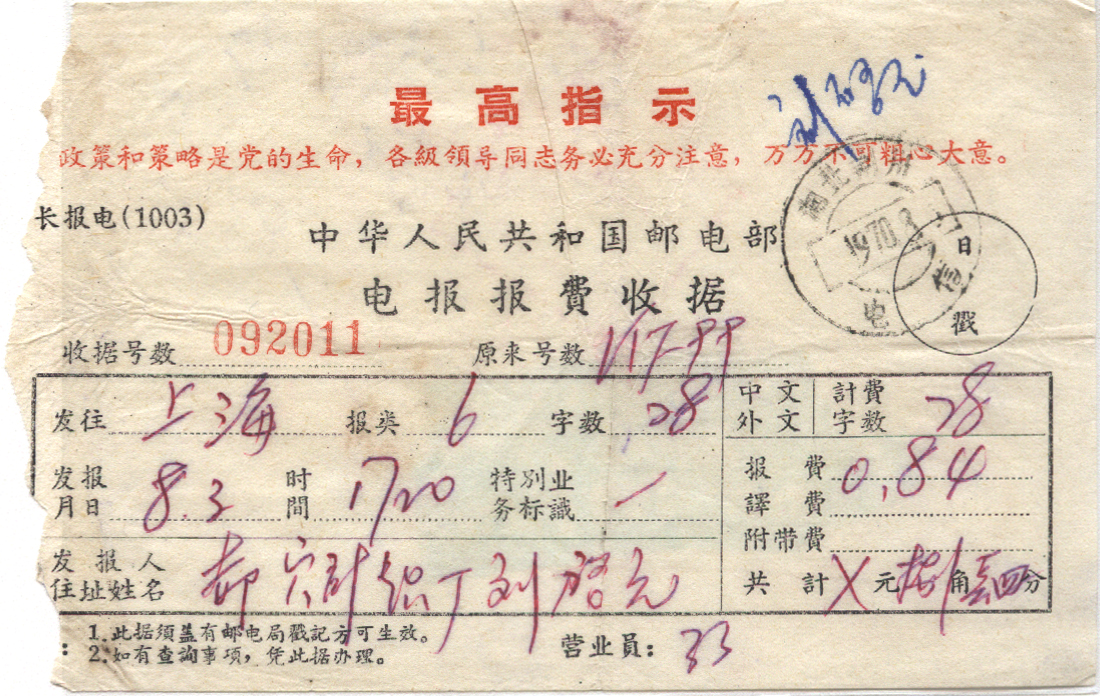 最高指示
政策和策略是党的生命，各級領导同志务必充分注意，万万不可粗心大意。
长报电(1003)
中华人民共和国邮电部
电报报費收据
1970.8
电
日
戳
收据号数 092011 原来号数
发往 上海 报类 6 字数 28
中文 外文 計費字数 28
发报月日 8.3 时間 1720 特別业务标識 一
报費 0.84
譯費
附带費
发报人住址姓名 刘启元
共計 X元捌角肆分
1.此据須盖有邮电局戳記方可生效。
2.如有查詢事項，凭此据办理。
营业员： 33